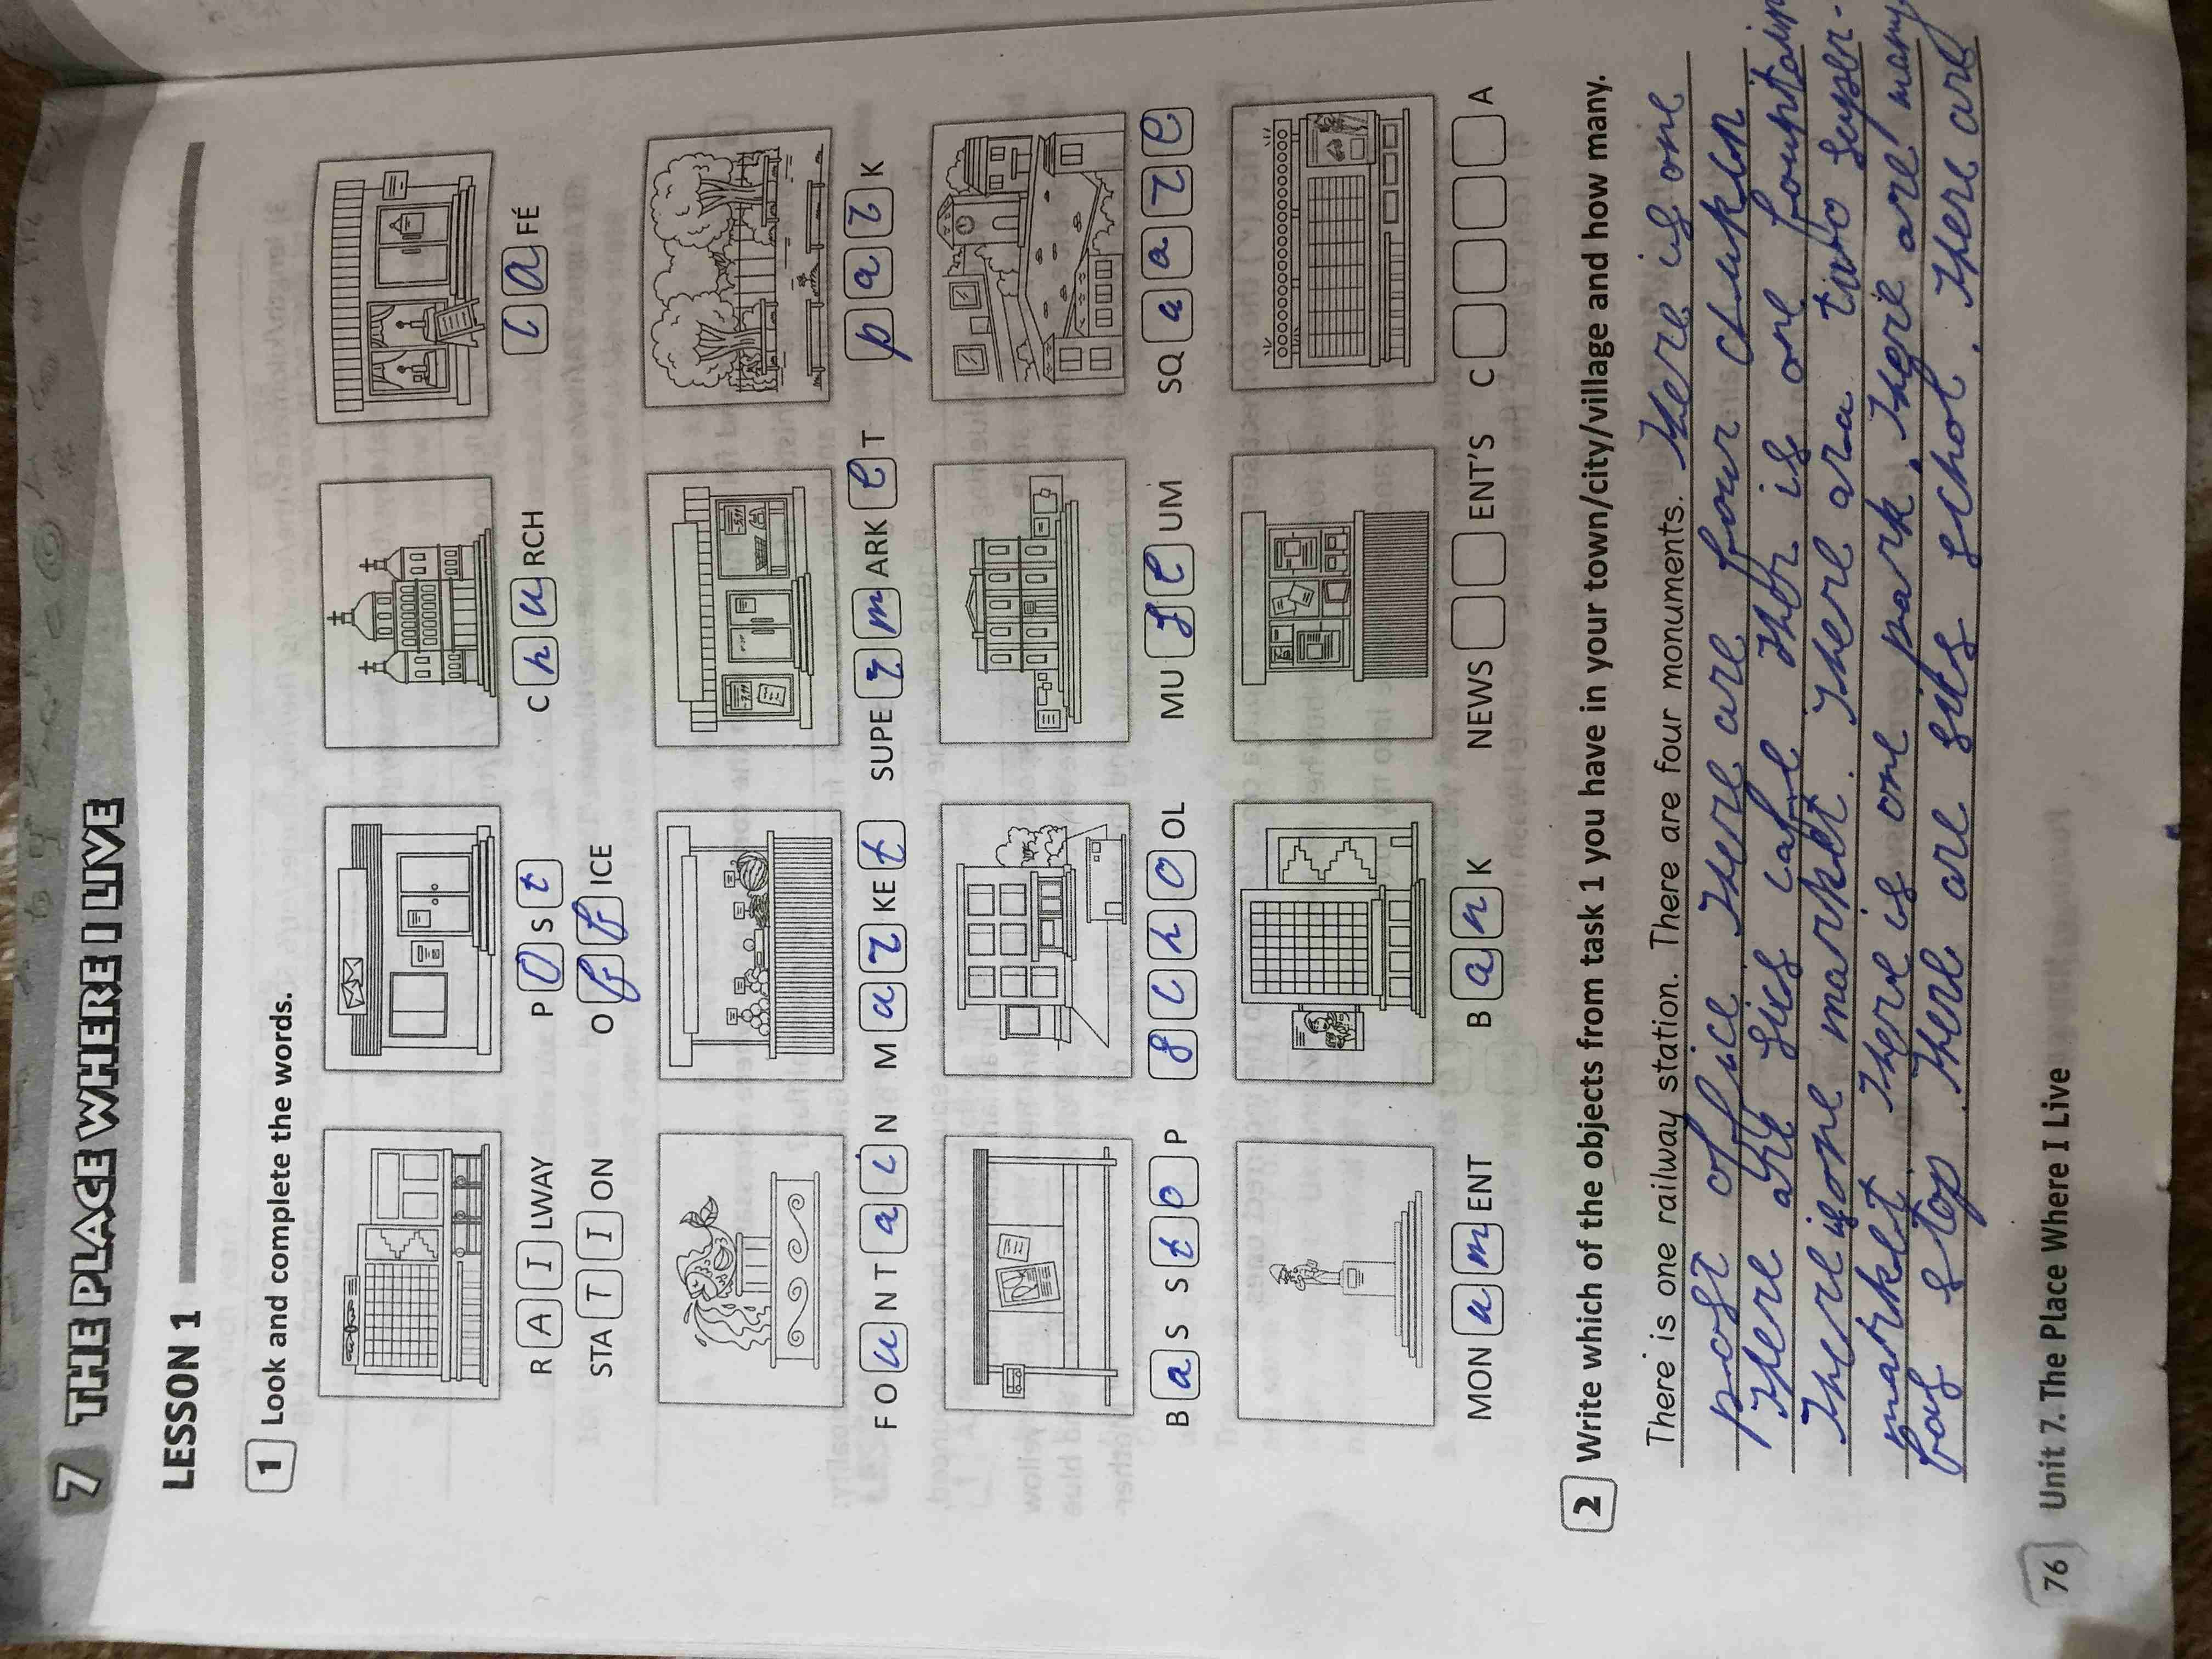 7 THE PLACE WHERE I LIVE
LESSON 1
1 Look and complete the words.
R A I LWAY
STA T I ON
P O S t
O f f ICE
C h u RCH
c a FÉ
F O u N T a i N
M a r K E t
SUPE r m ARK e T
p a r K
B a S S t o P
s c h o OL
MU s e UM
SQ u a r e
MON u m ENT
B a n K
NEWS ENT'S
C A
2 Write which of the objects from task 1 you have in your town/city/village and how many.
There is one railway station. There are four monuments. There is one
post office. There are four
There are sics cafe Ther is one fountain
There is one market. There ara two super-
market. There is one park. There are many
stop There are sics schol. There are
76 Unit 7. The Place Where I Live